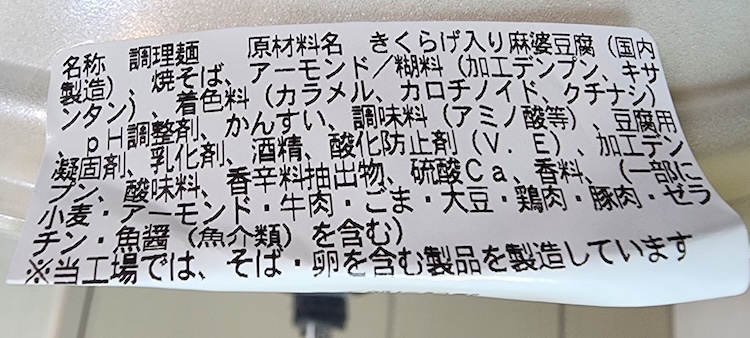 名称 調理麺 原材料名 きくらげ入り麻婆豆腐(国内
製造)、焼そば、アーモンド/糊料(加工デンプン、キサ
ンタン) 着色料(カラメル、カロチノイド、クチナシ)
、pH調整剤、かんすい、調味料(アミノ酸等)、豆腐用
凝固剤、乳化剤、酒精、酸化防止剤(V.E)、加工デン
プン、酸味料、香辛料抽出物、硫酸Ca、香料、(一部に
小麦・アーモンド・牛肉・ごま・大豆・鶏肉・豚肉・ゼラ
チン・魚醤(魚介類)を含む)
※当工場では、そば・卵を含む製品を製造しています